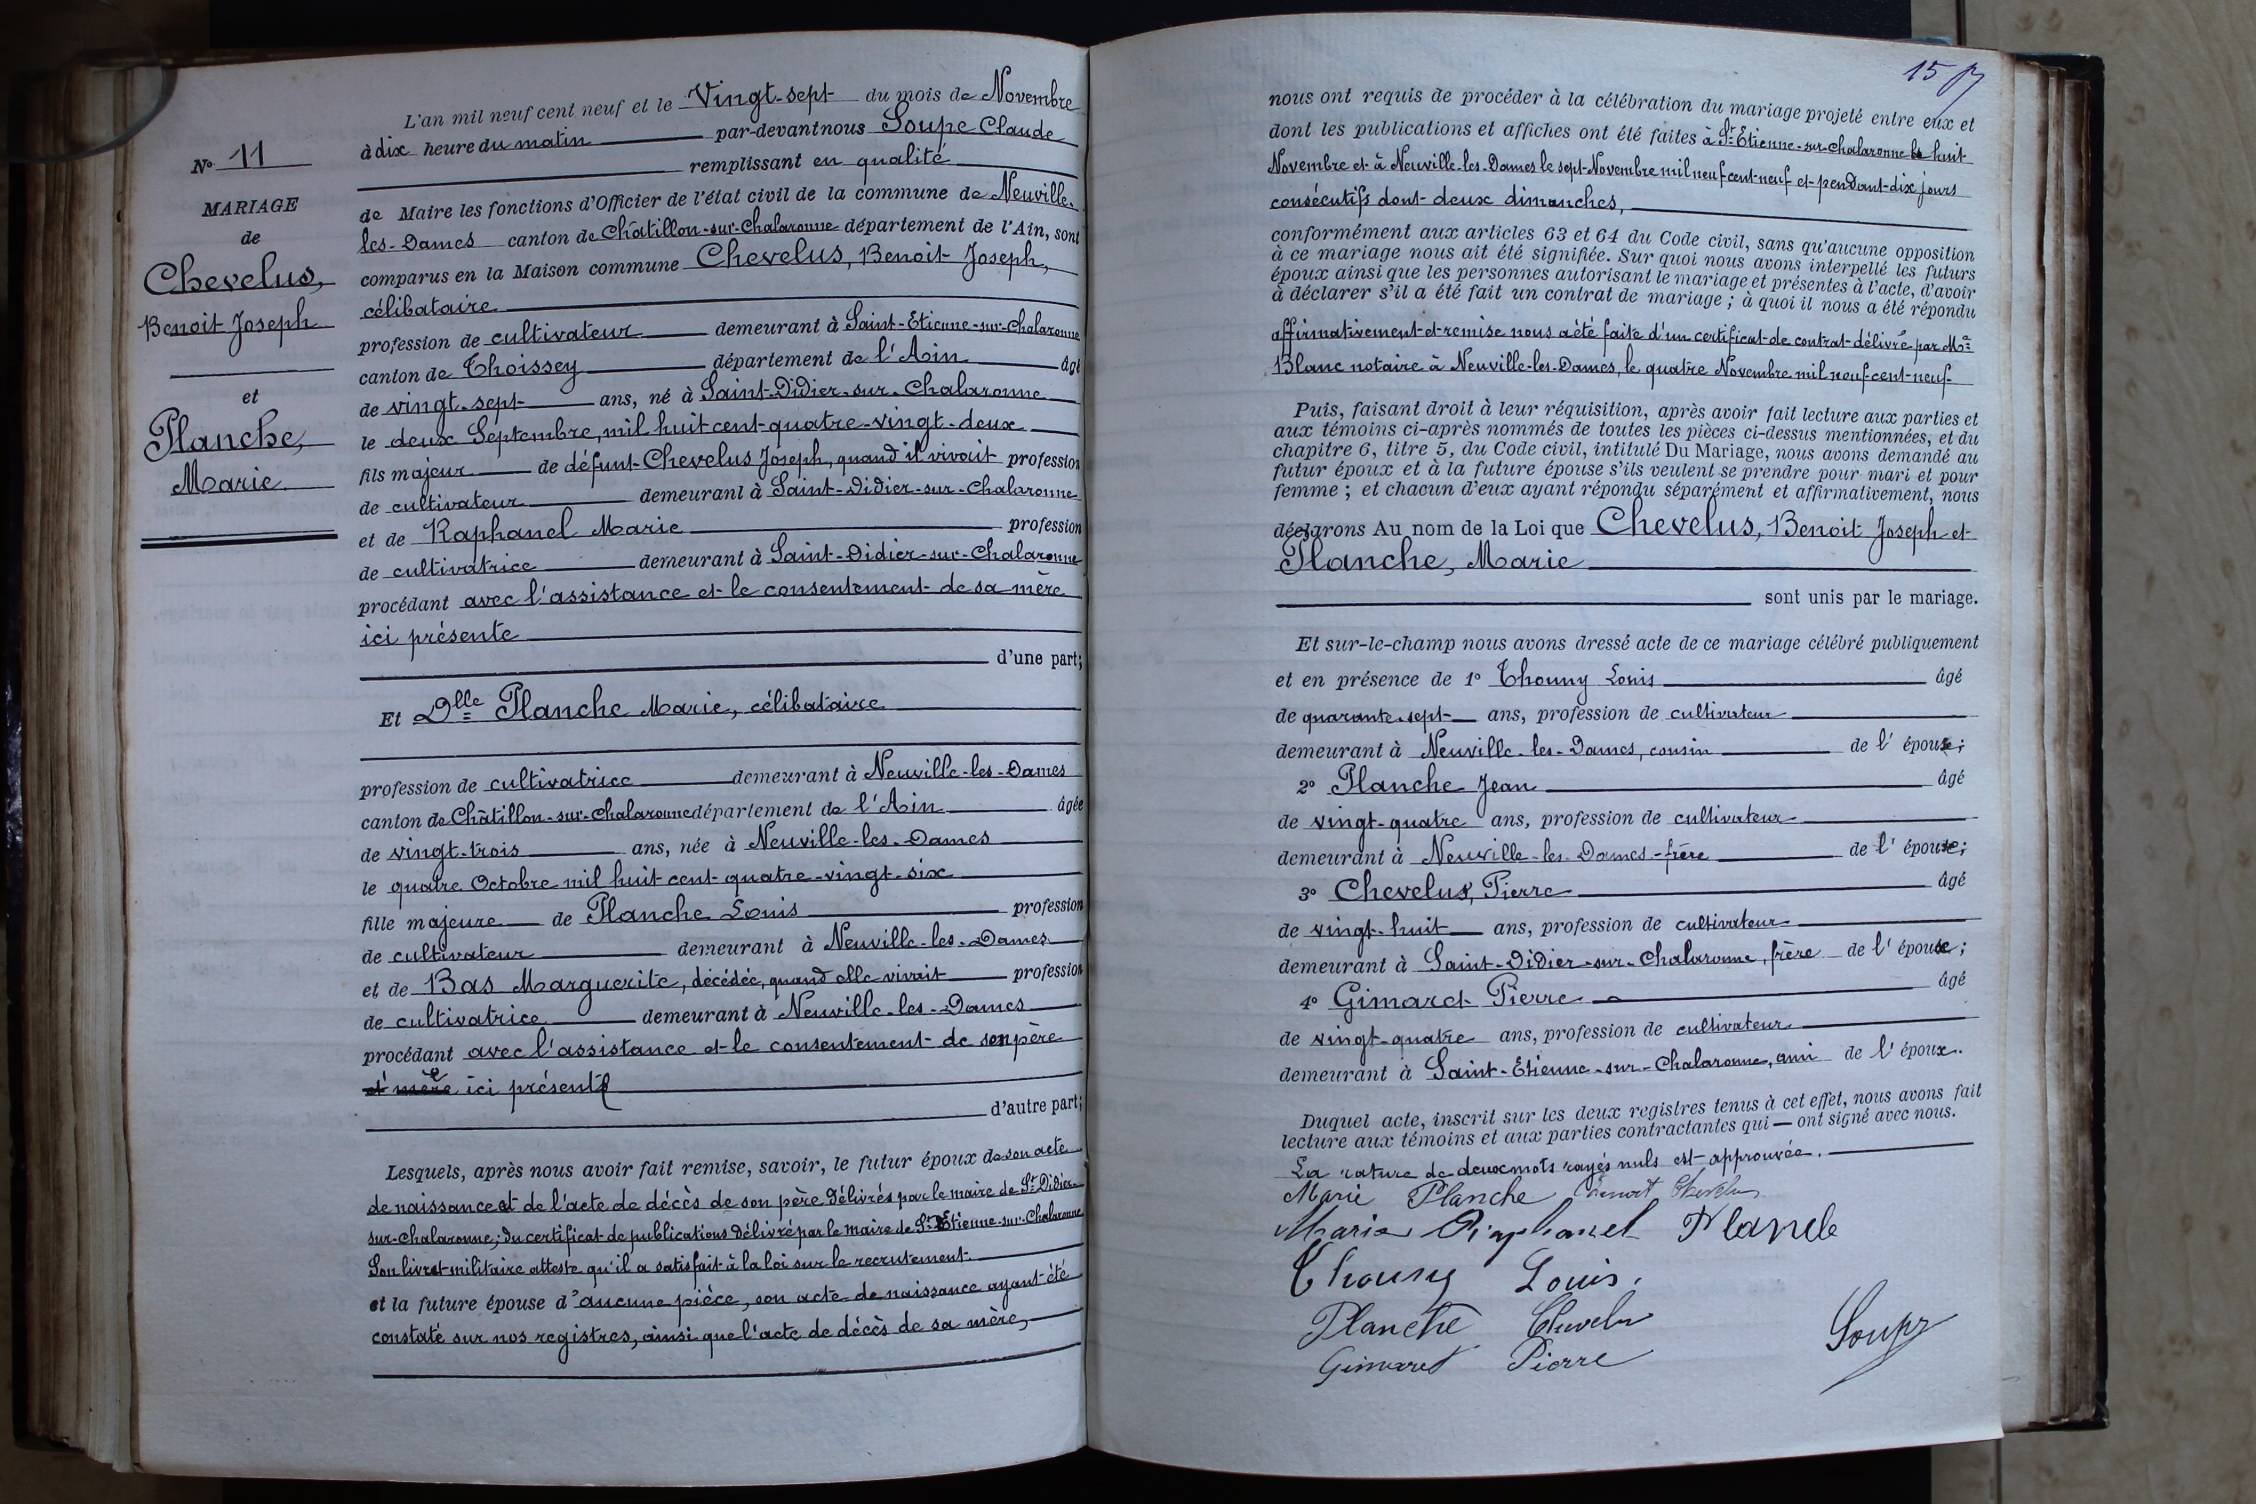 N° 11
MARIAGE
de
Chevelus,
Benoit Joseph
et
Planche,
Marie
L'an mil neuf cent neuf et le Vingt-sept du mois de Novembre
à dix heure du matin par-devant nous Soupe Claude
remplissant en qualité
de Maire les fonctions d'Officier de l'état civil de la commune de Neuville-
les-Dames canton de Châtillon-sur-Chalaronne département de l'Ain, sont
comparus en la Maison commune Chevelus, Benoit Joseph,
célibataire
profession de cultivateur demeurant à Saint-Etienne-sur-Chalaronne
canton de Thoissey département de l'Ain âgé
de vingt-sept ans, né à Saint-Didier-sur-Chalaronne
le deux Septembre, mil huit cent quatre-vingt-deux
fils majeur de défunt Chevelus Joseph, quand il vivait profession
de cultivateur demeurant à Saint-Didier-sur-Chalaronne
et de Raphanel Marie profession
de cultivatrice demeurant à Saint-Didier-sur-Chalaronne
procédant avec l'assistance et le consentement de sa mère
ici présente
d'une part;
Et Dlle Planche Marie, célibataire
profession de cultivatrice demeurant à Neuville-les-Dames
canton de Châtillon-sur-Chalaronne département de l'Ain âgée
de vingt-trois ans, née à Neuville-les-Dames
le quatre Octobre mil huit cent quatre-vingt-six
fille majeure de Planche Louis profession
de cultivateur demeurant à Neuville-les-Dames
et de Bas Marguerite, décédée, quand elle vivait profession
de cultivatrice demeurant à Neuville-les-Dames
procédant avec l'assistance et le consentement de son père
et mère ici présent
d'autre part;
Lesquels, après nous avoir fait remise, savoir, le futur époux de son acte
de naissance et de l'acte de décès de son père délivrés par le maire de St Didier-
sur-Chalaronne; du certificat de publications délivré par le maire de St Etienne-sur-Chalaronne
Son livret militaire atteste qu'il a satisfait à la loi sur le recrutement.
et la future épouse d'aucune pièce, son acte de naissance ayant été
constaté sur nos registres, ainsi que l'acte de décès de sa mère,
15
nous ont requis de procéder à la célébration du mariage projeté entre eux et
dont les publications et affiches ont été faites à St Etienne-sur-Chalaronne le huit
Novembre et à Neuville-les-Dames le sept Novembre mil neuf cent neuf et pendant dix jours
consécutifs dont deux dimanches,
conformément aux articles 63 et 64 du Code civil, sans qu'aucune opposition
à ce mariage nous ait été signifiée. Sur quoi nous avons interpellé les futurs
époux ainsi que les personnes autorisant le mariage et présentes à l'acte, d'avoir
à déclarer s'il a été fait un contrat de mariage; à quoi il nous a été répondu
affirmativement et remise nous a été faite d'un certificat de contrat délivré par Me
Blanc notaire à Neuville-les-Dames, le quatre Novembre mil neuf cent neuf
Puis, faisant droit à leur réquisition, après avoir fait lecture aux parties et
aux témoins ci-après nommés de toutes les pièces ci-dessus mentionnées, et du
chapitre 6, titre 5, du Code civil, intitulé Du Mariage, nous avons demandé au
futur époux et à la future épouse s'ils veulent se prendre pour mari et pour
femme; et chacun d'eux ayant répondu séparément et affirmativement, nous
déclarons Au nom de la Loi que Chevelus, Benoit Joseph et
Planche, Marie
sont unis par le mariage.
Et sur-le-champ nous avons dressé acte de ce mariage célébré publiquement
et en présence de 1° Thouny Louis âgé
de quarante-sept ans, profession de cultivateur
demeurant à Neuville-les-Dames, cousin de l'épouse;
2° Planche Jean âgé
de vingt-quatre ans, profession de cultivateur
demeurant à Neuville-les-Dames-frère de l'épouse;
3° Chevelus, Pierre âgé
de vingt-huit ans, profession de cultivateur
demeurant à Saint-Didier-sur-Chalaronne, frère de l'époux;
4° Gimaret Pierre âgé
de vingt-quatre ans, profession de cultivateur
demeurant à Saint-Etienne-sur-Chalaronne, ami de l'époux.
Duquel acte, inscrit sur les deux registres tenus à cet effet, nous avons fait
lecture aux témoins et aux parties contractantes qui — ont signé avec nous.
La rature de deux mots rayés nuls est approuvée.
Marie Planche Benoit Chevelus
Marie Raphanel Planche
Thouny Louis.
Planche Chevelus
Gimaret Pierre
Soupe